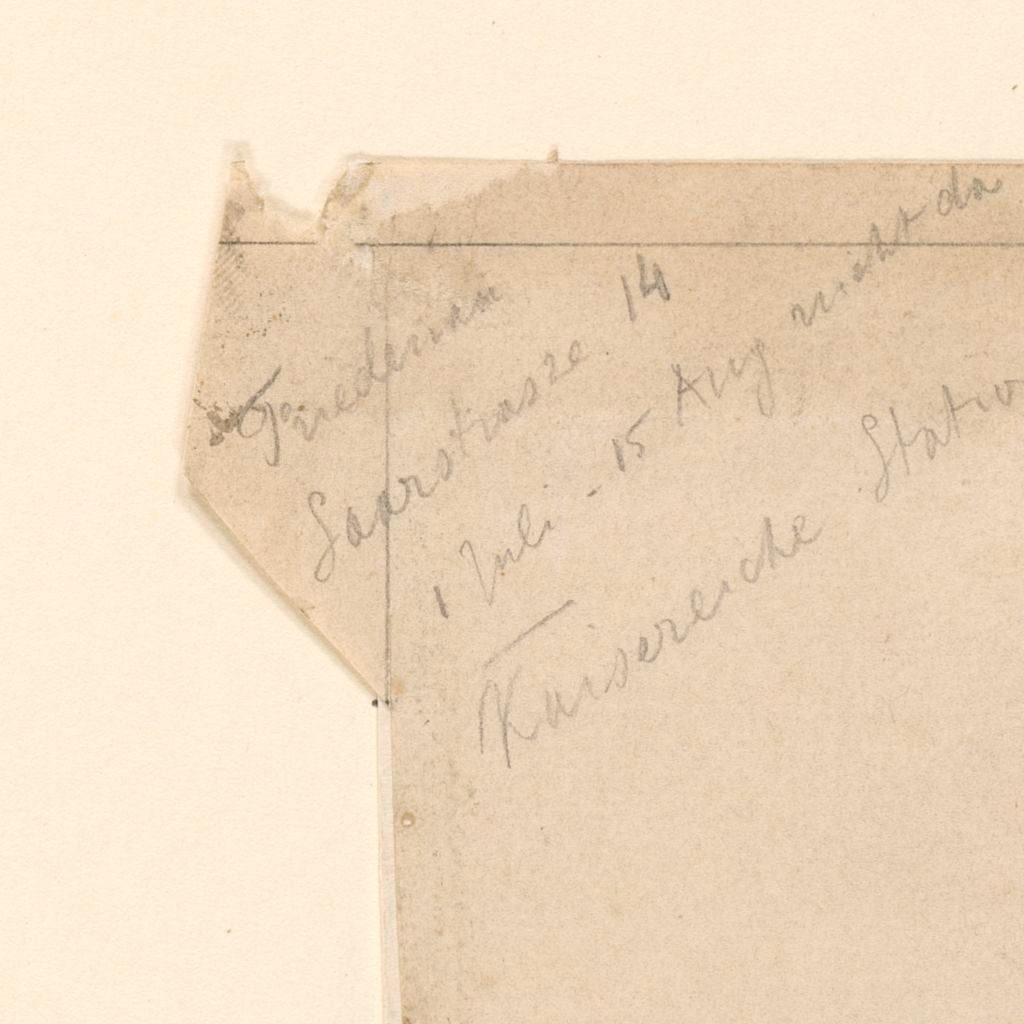 Friedenau
Saarstrasze 14
1 Juli - 15 Aug nicht da
Kaisereiche Statio